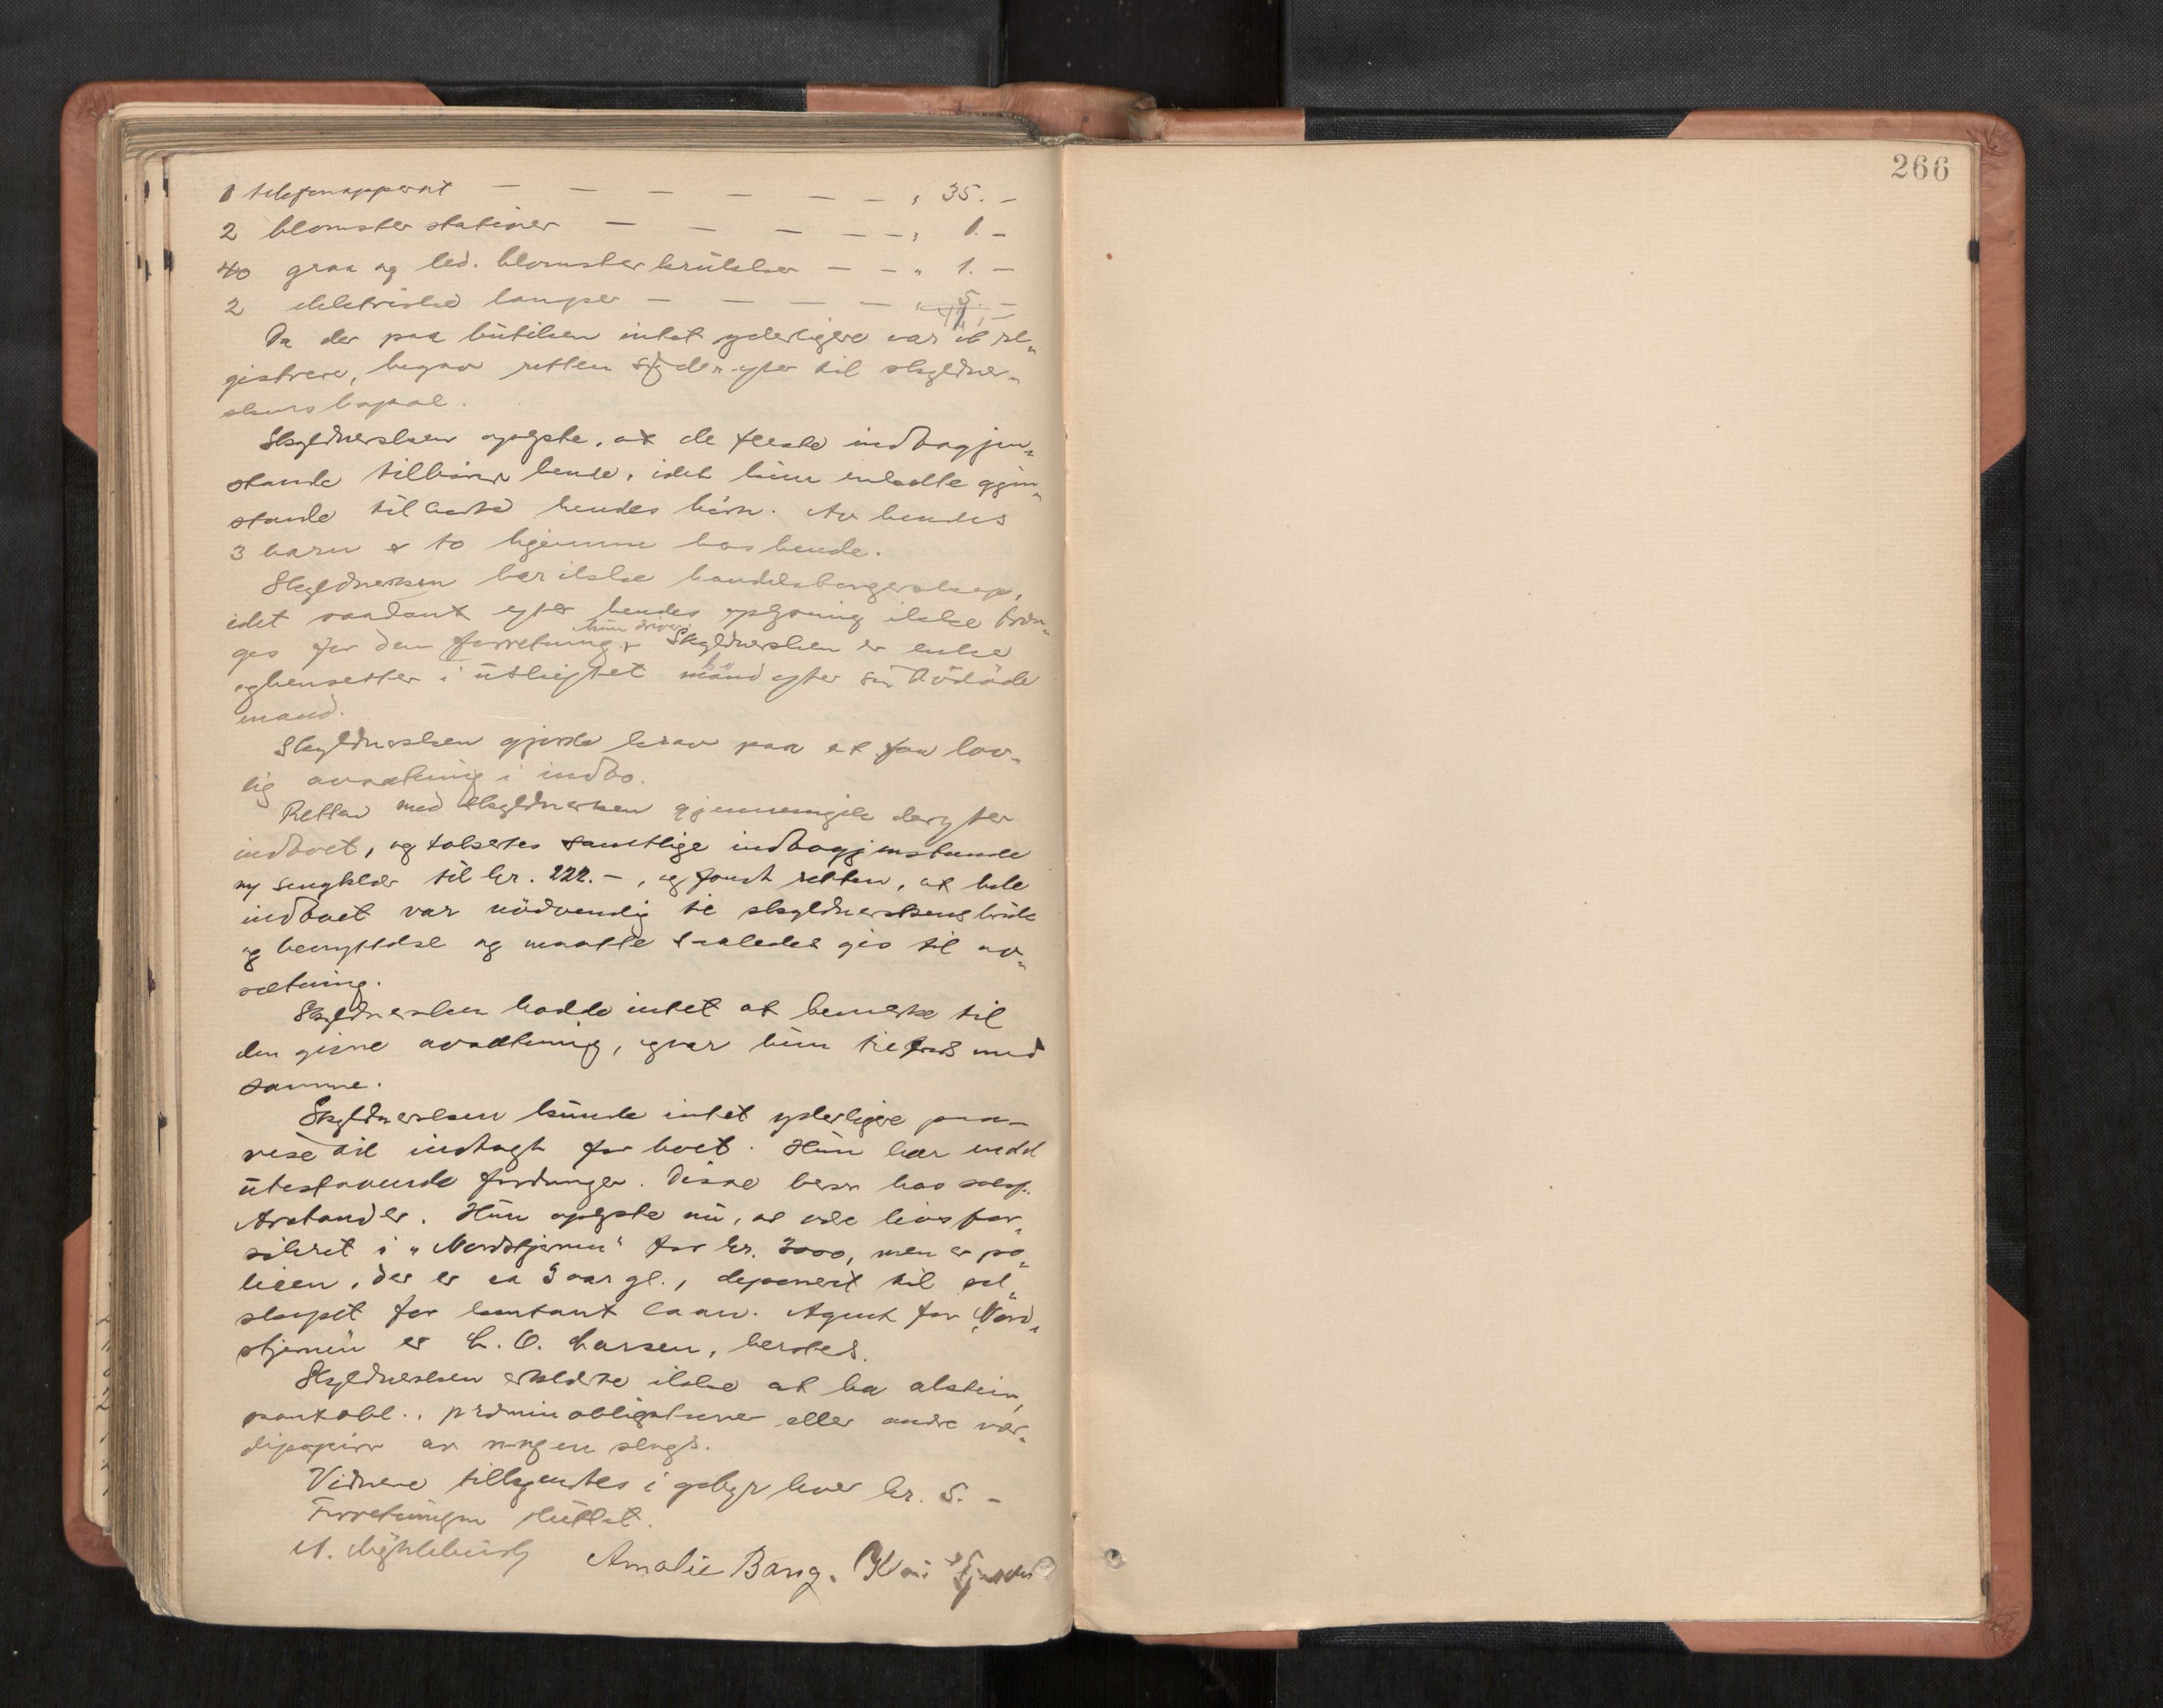 1 telefonapparat — — — — — — „ 35. —
2 blomsterstativer — — — — — „ 1. —
40 graa og led. blomsterkrukker — — „ 1. —
2 elektriske lamper — — — — „ 5. —
Da der paa butiken intet yderligere var at re„
gistrere, begav retten sig derefter til skyldner„
skens bopæl.
Skyldnersken oplyste, at de fleste indbogjen„
stande tilhører hende, idet hun endelte gjen„
stande tilhørte hendes børn. Av hendes
3 barn er to hjemme hos hende.
Skyldnersken har ikke handelsborgerskap,
idet saadant efter hendes oplysning ikke træn„
ges for den forretning hun driver. Skyldnersken er enke
og hensitter i uskiftet bo efter sin avdøde
mand.
Skyldnersken gjorde krav paa at faa lov„
lig avsætning i indbo.
Retten med skyldnersken gjennemgik derefter
indboet, og takseres samtlige indbogjenstande
og sengklær til kr. 222. —, og fandt retten, at hele
indboet var nødvendig til skyldnerskens bruk
og benyttelse og maatte saaledes gis til av„
sætning.
Skyldnersken hadde intet at bemerke til
den givne avsætning, og var hun tilfreds med
samme.
Skyldnersken kunde intet yderligere paa„
vise til indtægt for boet. Hun har endel
utestaaende fordringer. Disse bero hos sakf.
Arstander. Hun oplyste nu, at være livsfor„
sikret i „Nordstjernen" for kr. 3000, men er po„
licen, der er ca 3 aar gl., deponert til sel„
skapet for kontant laan. Agent for „Nord„
stjernen er L. O. Larsen, hersteds.
Skyldnersken erklærte ikke at ha aktier,
pantobl., præmieobligationer eller andre vær„
dipapirer av nogen slags.
Vidnene tilkjendtes i gebyr hver kr. 5. —
Forretningen sluttet.
Amalie Bang.
266